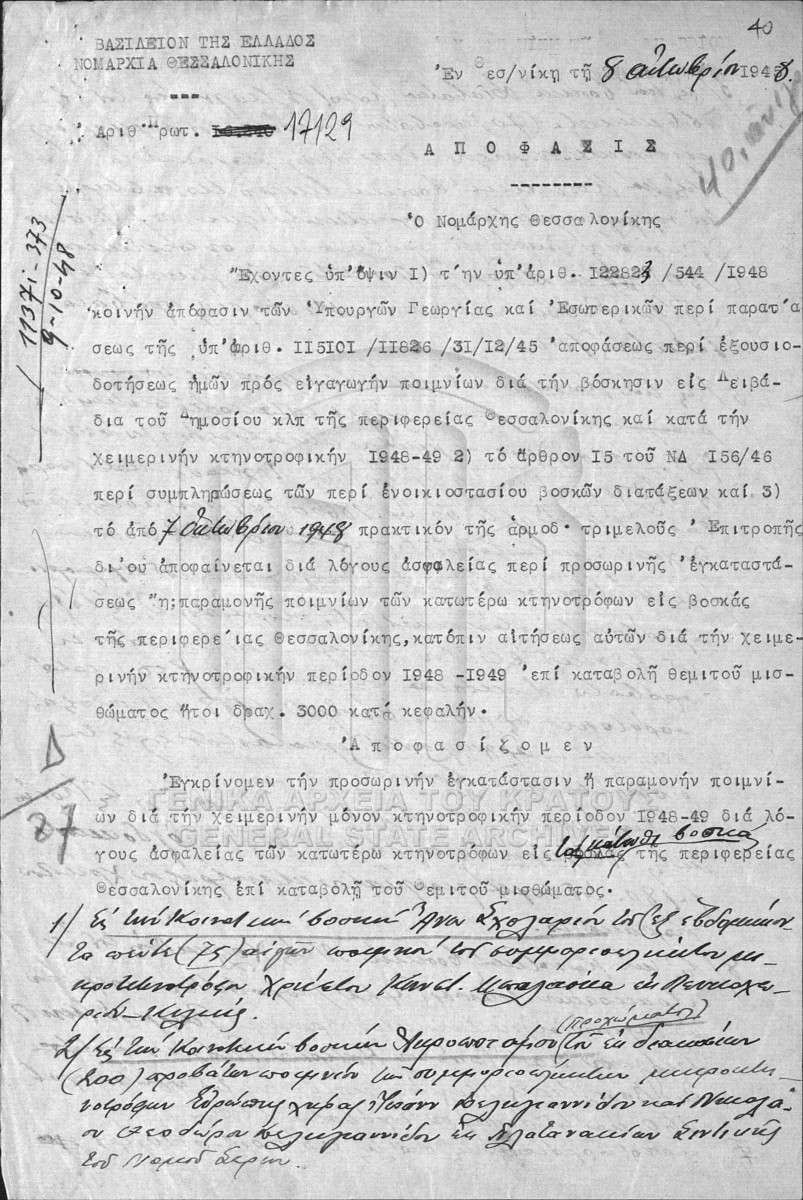 40
ΒΑΣΙΛΕΙΟΝ ΤΗΣ ΕΛΛΑΔΟΣ
ΝΟΜΑΡΧΙΑ ΘΕΣΣΑΛΟΝΙΚΗΣ
Ἐν Θεσ/νίκῃ τῇ 8 Οκτωβρίου 1948.
Ἀριθ. Πρωτ. 17129
ΑΠΟΦΑΣΙΣ
Ὁ Νομάρχης Θεσσαλονίκης
11371-373
9-10-48
Ἔχοντες ὑπ'ὄψιν Ι) τ'ην ὑπ'ἀριθ. Ι22823 /544 /1948
κοινήν ἀπόφασιν τῶν Ὑπουργῶν Γεωργίας καί Ἐσωτερικῶν περί παρατ'ά
σεως τῆς ὑπ'ἀριθ. ΙΙ5ΙΟΙ /ΙΙ826 /3Ι/Ι2/45 ἀποφάσεως περί ἐξουσιο-
δοτήσεως ἡμῶν πρός εἰγαγωγήν ποιμνίων διά τήν βόσκησιν εἰς Λειβά-
δια τοῦ Δημοσίου κλπ τῆς περιφερείας Θεσσαλονίκης καί κατά τήν
χειμερινήν κτηνοτροφικήν 1948-49 2) τό ἄρθρον Ι5 τοῦ ΝΔ Ι56/46
περί συμπληρώσεως τῶν περί ἐνοικιοστασίου βοσκῶν διατάξεων καί 3)
τό ἀπό 7 Οκτωβρίου 1948 πρακτικόν τῆς ἁρμοδ. τριμελοῦς Ἐπιτροπῆς
δι'οὗ ἀποφαίνεται διά λόγους ἀσφαλείας περί προσωρινῆς ἐγκαταστά-
σεως ἤ;παραμονῆς ποιμνίων τῶν κατωτέρω κτηνοτρόφων εἰς βοσκάς
τῆς περιφερε'ιας Θεσσαλονίκης,κατόπιν αἰτήσεως αὐτῶν διά τήν χειμε-
ρινήν κτηνοτροφικήν περίοδον 1948 -1949 ἐπί καταβολῇ θεμιτοῦ μισ-
θώματος ἤτοι δραχ. 3000 κατά κεφαλήν.
Ἀποφασίζομεν
Δ
87
Ἐγκρίνομεν τήν προσωρινήν ἐγκατάστασιν ἤ παραμονήν ποιμνί-
ων διά τήν χειμερινήν μόνον κτηνοτροφικήν περίοδον 1948-49 διά λό-
γους ἀσφαλείας τῶν κατωτέρω κτηνοτρόφων εἰς τα κάτωθι βοσκά τῆς περιφερείας
Θεσσαλονίκης ἐπί καταβολῇ τοῦ θεμιτοῦ μισθώματος.
ΓΕΝΙΚΑ ΑΡΧΕΙΑ ΤΟΥ ΚΡΑΤΟΥΣ
GENERAL STATE ARCHIVES
1/ Εις την Κοινοτικήν βοσκήν Άνω Σχολαρίου του εξ εβδομήκον-
τα πέντε (75) αιγών ποιμνίου του συμμοριοπλήκτου μι-
κροκτηνοτρόφου Χρήστου Κωνστ. εκ Ποντοκερα-
Κιλκίς.
(προχώματος)
2/ Εις την Κοινοτικήν βοσκήν του εκ διακοσίων
(200) προβάτων ποιμνίου των συμμοριοπλήκτων μικροκτη-
νοτρόφων χήρας και Νικολά-
ου Θεοδώρου εκ Πλατανακίων Σιντικής
του Νομού Σερρών.